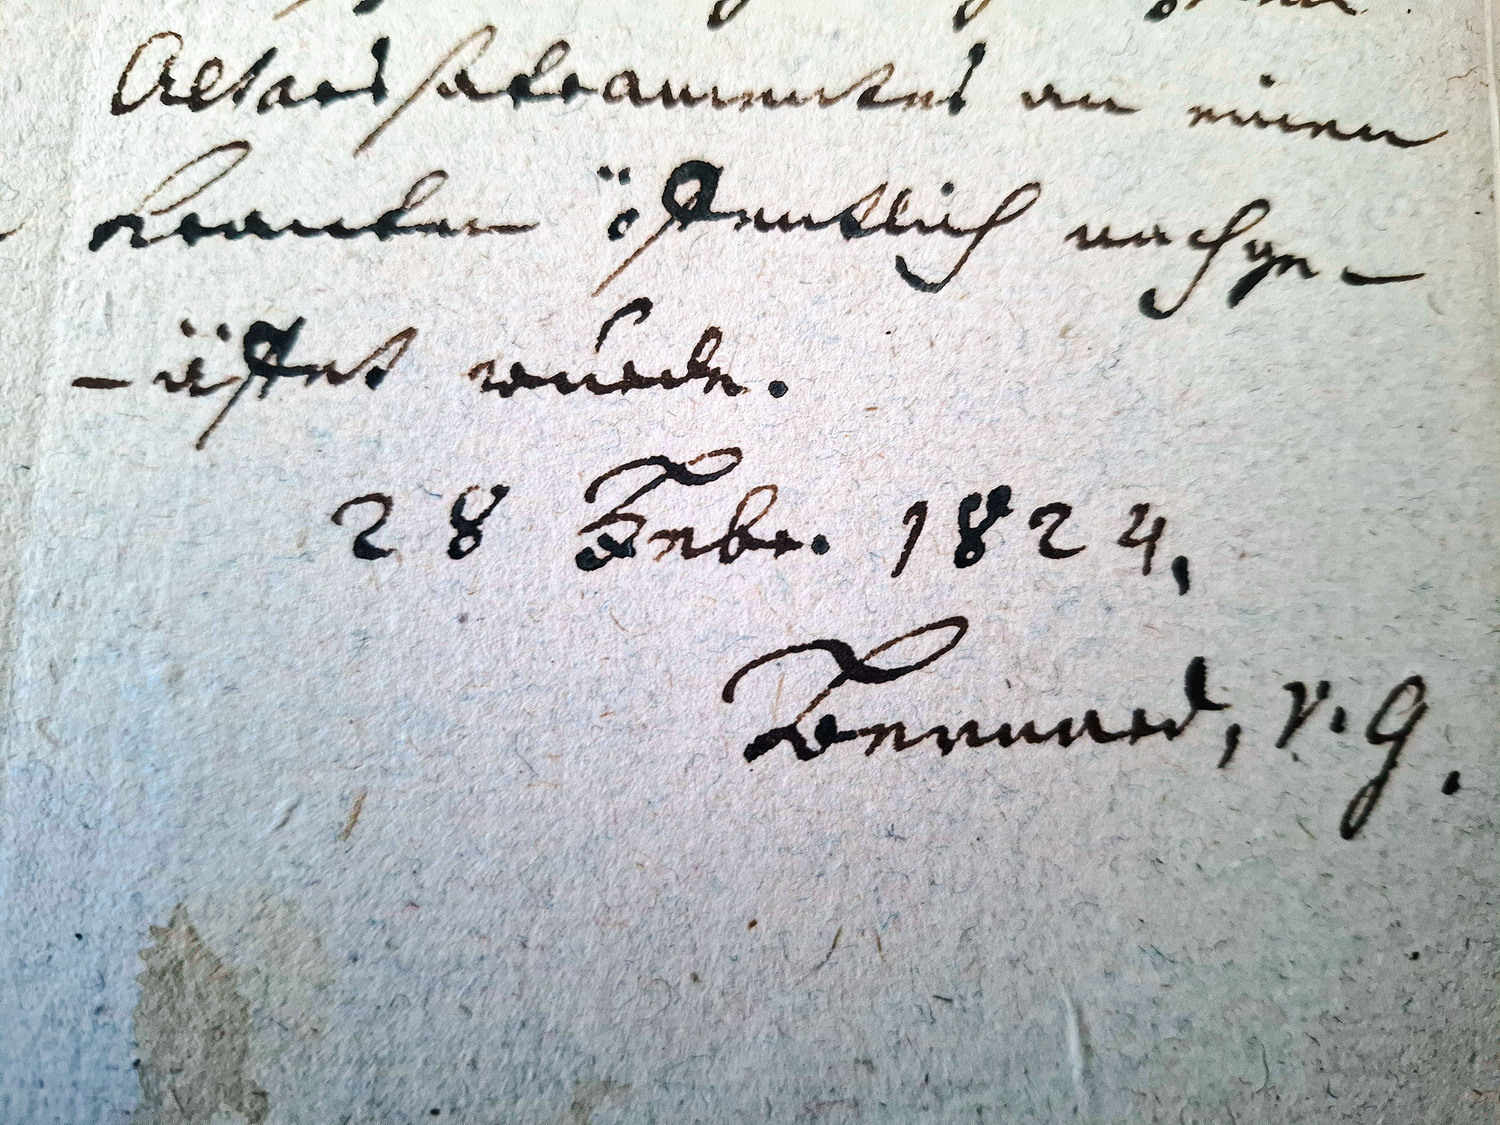 Altarssakramentes an einen
Kranken öffentlich nachge-
-äffet wurde.
28 Febr. 1824.
Bernhard, v. G.